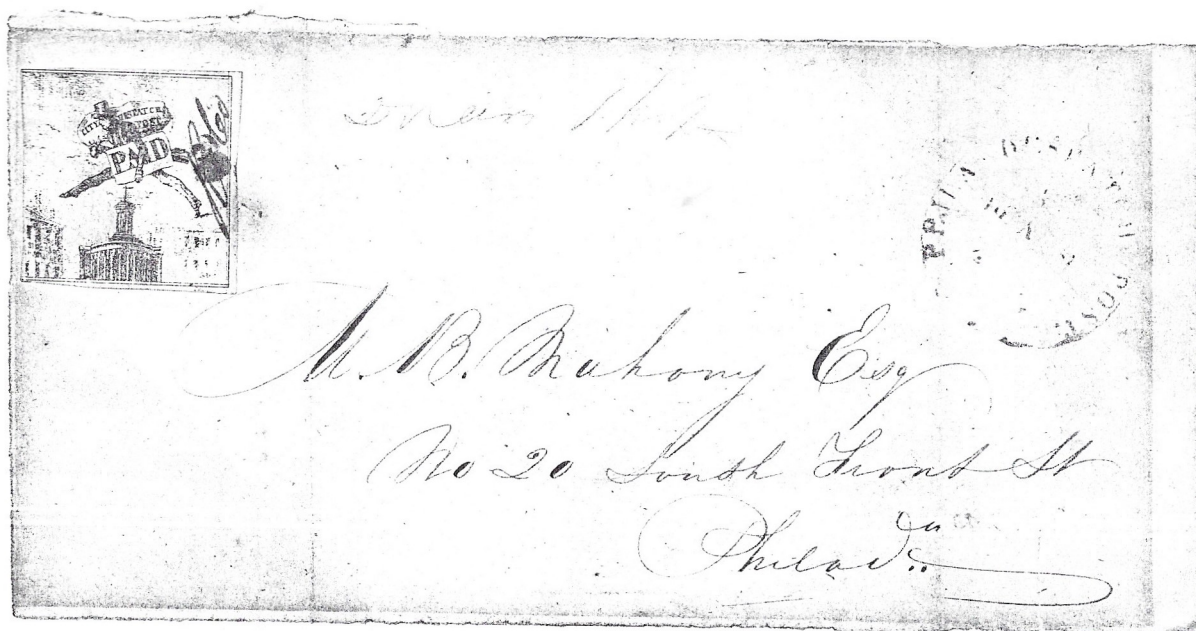 CITY DESPATCH
POST
PMD
PHILA DESPATCH POST
M. B. Mahony Esq
No 20 South Front St
Philada